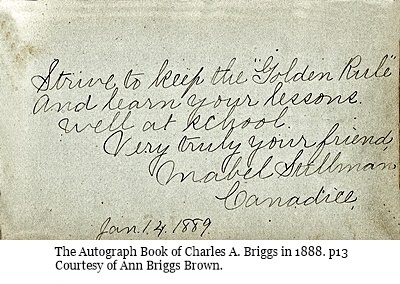 Strive to keep the "Golden Rule"
and learn your lessons
well at school.
Very truly your friend,
Mabel Stillman
Canadice,
Jan. 14. 1889
The Autograph Book of Charles A. Briggs in 1888. p13
Courtesy of Ann Briggs Brown.